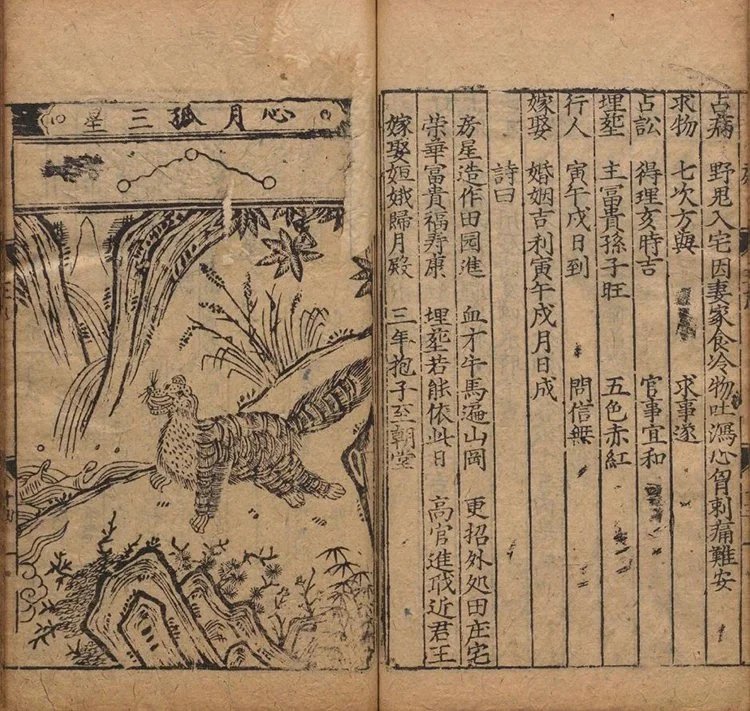 占病 野鬼入宅因妻家食冷物吐瀉心胷刺痛難安
求物 七次方與 求事遂
占訟 得理亥時吉 官事宜和
埋塟 主冨貴孫子旺 五色赤紅
行人 寅午戌日到 問信無
嫁娶 婚姻吉利寅午戌月日成
詩曰
房星造作田园進 血才牛馬遍山岡 更招外処田庄宅
荣華富貴福寿康 埋塟若能依此日 高官進戢近君王
嫁娶姮娥歸月殿 三年抱子至朝堂
心月狐三星